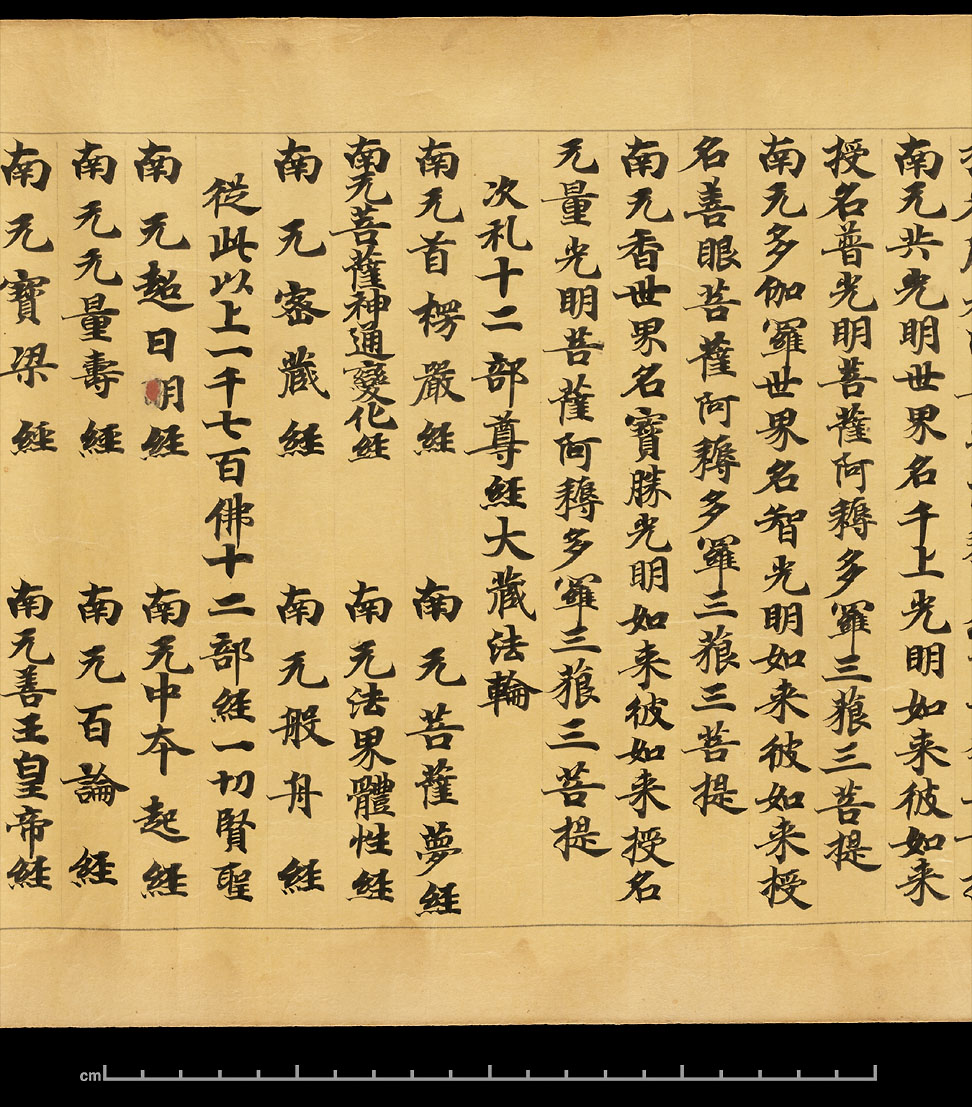 南无共光明世界名千上光明如来彼如来
授名普光明菩薩阿耨多羅三藐三菩提
南无多伽羅世界名智光明如来彼如来授
名善眼菩薩阿耨多羅三藐三菩提
南无香世界名寶勝光明如来彼如来授名
无量光明菩薩阿耨多羅三藐三菩提
次礼十二部尊經大藏法輪
南无首楞嚴經 南无菩薩夢經
南无菩薩神通變化經 南无法界體性經
南无密藏經 南无般舟經
從此以上一千七百佛十二部經一切賢聖
南无超日明經 南无中夲起經
南无无量壽經 南无百論經
南无寶梁經 南无善王皇帝經